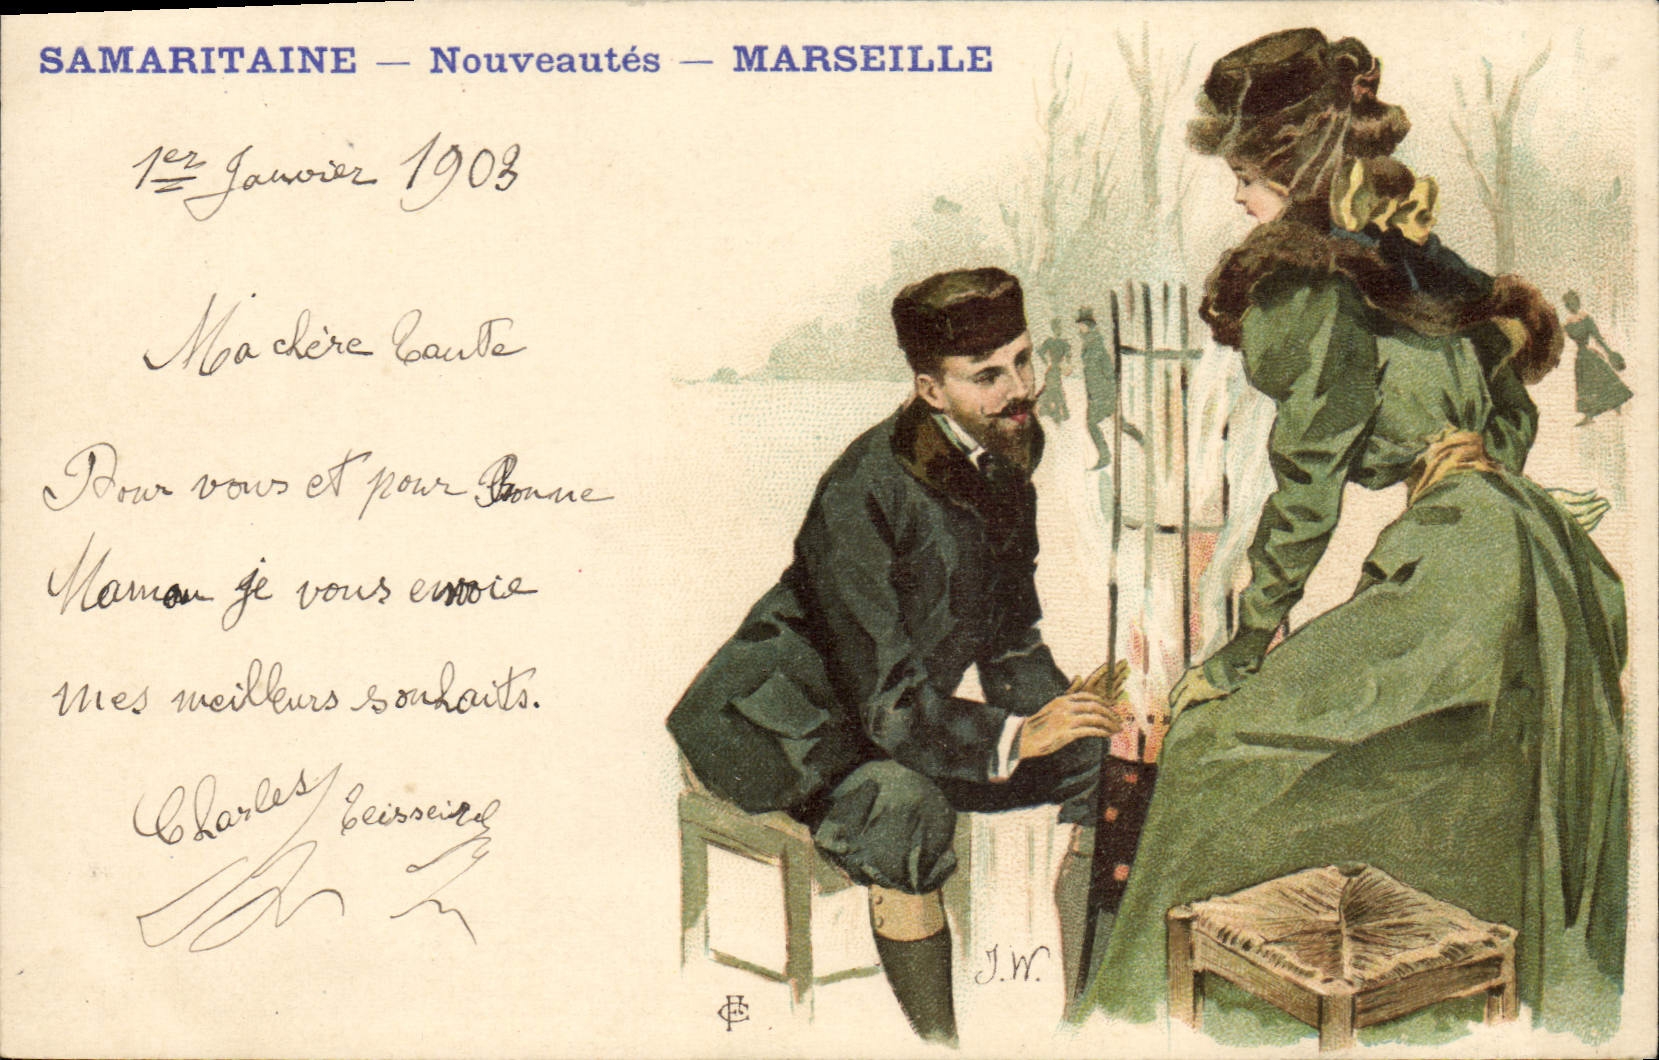 SAMARITAINE — Nouveautés — MARSEILLE
1er Janvier 1903
Ma chère Tante
Pour vous et pour Bonne
Maman je vous envoie
mes meilleurs souhaits.
Charles Teisseire
J.W.